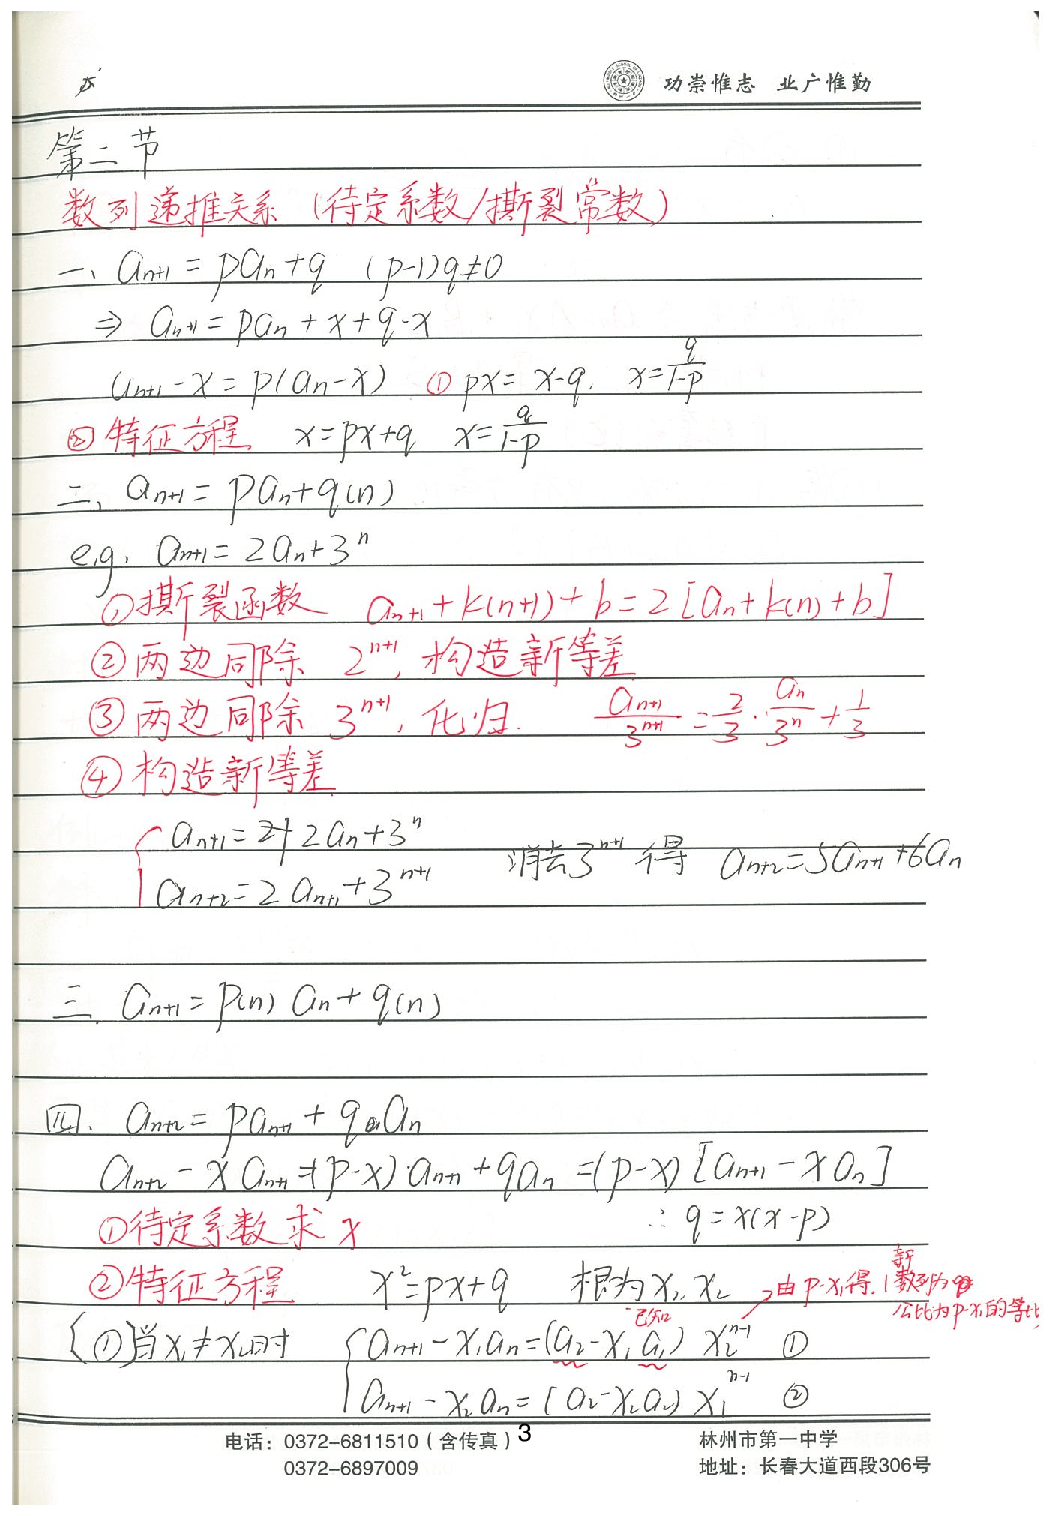 功崇惟志 业广惟勤
第二节
数列递推关系（待定系数/撕裂常数）
一、aₙ₊₁ = paₙ + q (p-1)q≠0
⇒ aₙ₊₁ = paₙ + x + q - x
aₙ₊₁ - x = p(aₙ - x) ① px = x - q. x = q/(1-p)
② 特征方程 x = px + q x = q/(1-p)
二、aₙ₊₁ = paₙ + q(n)
e.g. aₙ₊₁ = 2aₙ + 3ⁿ
① 撕裂函数 aₙ₊₁ + k(n+1) + b = 2[aₙ + k(n) + b]
② 两边同除 2ⁿ⁺¹, 构造新等差
③ 两边同除 3ⁿ⁺¹, 化归. aₙ₊₁/3ⁿ⁺¹ = 2/3 · aₙ/3ⁿ + 1/3
④ 构造新等差
aₙ₊₁ = 2aₙ + 3ⁿ
消去3ⁿ⁺¹ 得 aₙ₊₂ = 5aₙ₊₁ + 6aₙ
aₙ₊₂ = 2aₙ₊₁ + 3ⁿ⁺¹
三. aₙ₊₁ = p(n) aₙ + q(n)
四. aₙ₊₂ = paₙ₊₁ + qaₙ
aₙ₊₂ - xaₙ₊₁ = (p-x)·aₙ₊₁ + qaₙ = (p-x)[aₙ₊₁ - xaₙ]
① 待定系数求x ∴ q = x(x-p)
② 特征方程 x² = px + q 根为x₁, x₂ 由p-x₁得.新数列为
公比为p-x₁的等比
已知
{①当x₁≠x₂时 aₙ₊₁ - x₁aₙ = (a₂ - x₁a₁) x₂ⁿ⁻¹ ①
aₙ₊₁ - x₂aₙ = (a₂ - x₂a₁) x₁ⁿ⁻¹ ②
电话：0372-6811510（含传真） 3 林州市第一中学
0372-6897009 地址：长春大道西段306号